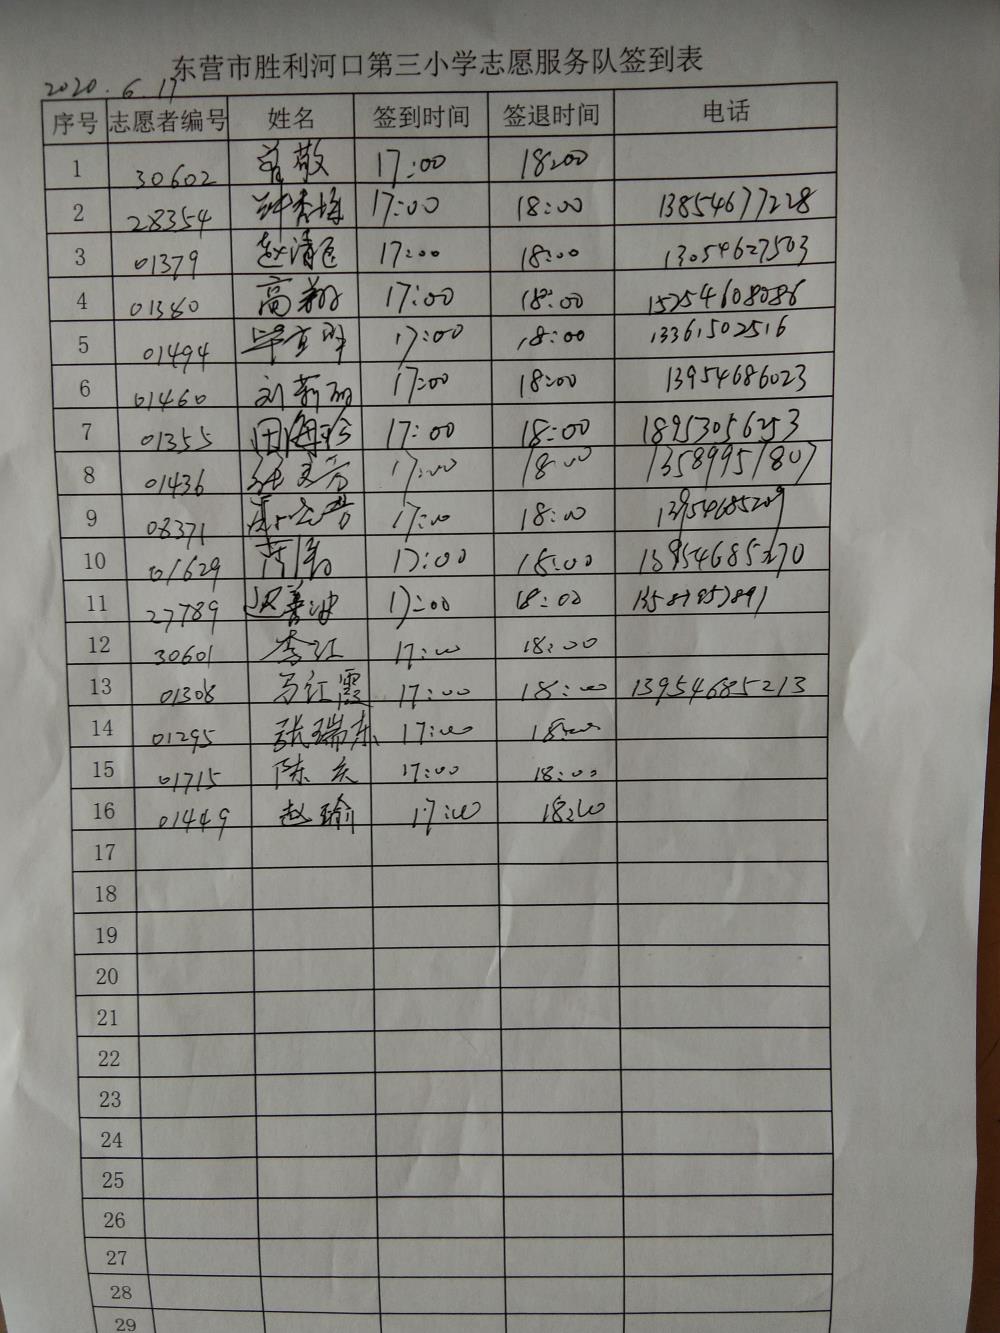 东营市胜利河口第三小学志愿服务队签到表
2020.6.17
序号 志愿者编号 姓名 签到时间 签退时间 电话
1 30602 敬 17:00 18:00
2 28354 17:00 18:00 13854677228
3 01379 赵清 17:00 18:00 13054627503
4 01380 高翔 17:00 18:00 15254608086
5 01494 17:00 18:00 13361502516
6 01460 刘莉丽 17:00 18:00 13954686023
7 01355 田海珍 17:00 18:00 18953056253
8 01436 张文芳 17:00 18:00 13589951807
9 08371 17:00 18:00 13954685209
10 01629 17:00 18:00 13954685270
11 27789 善波 17:00 18:00
12 30601 李红 17:00 18:00
13 01308 马江霞 17:00 18:00 13954685213
14 01295 张瑞东 17:00 18:00
15 01715 陈庆 17:00 18:00
16 01449 赵瑜 17:00 18:00
17
18
19
20
21
22
23
24
25
26
27
28
29